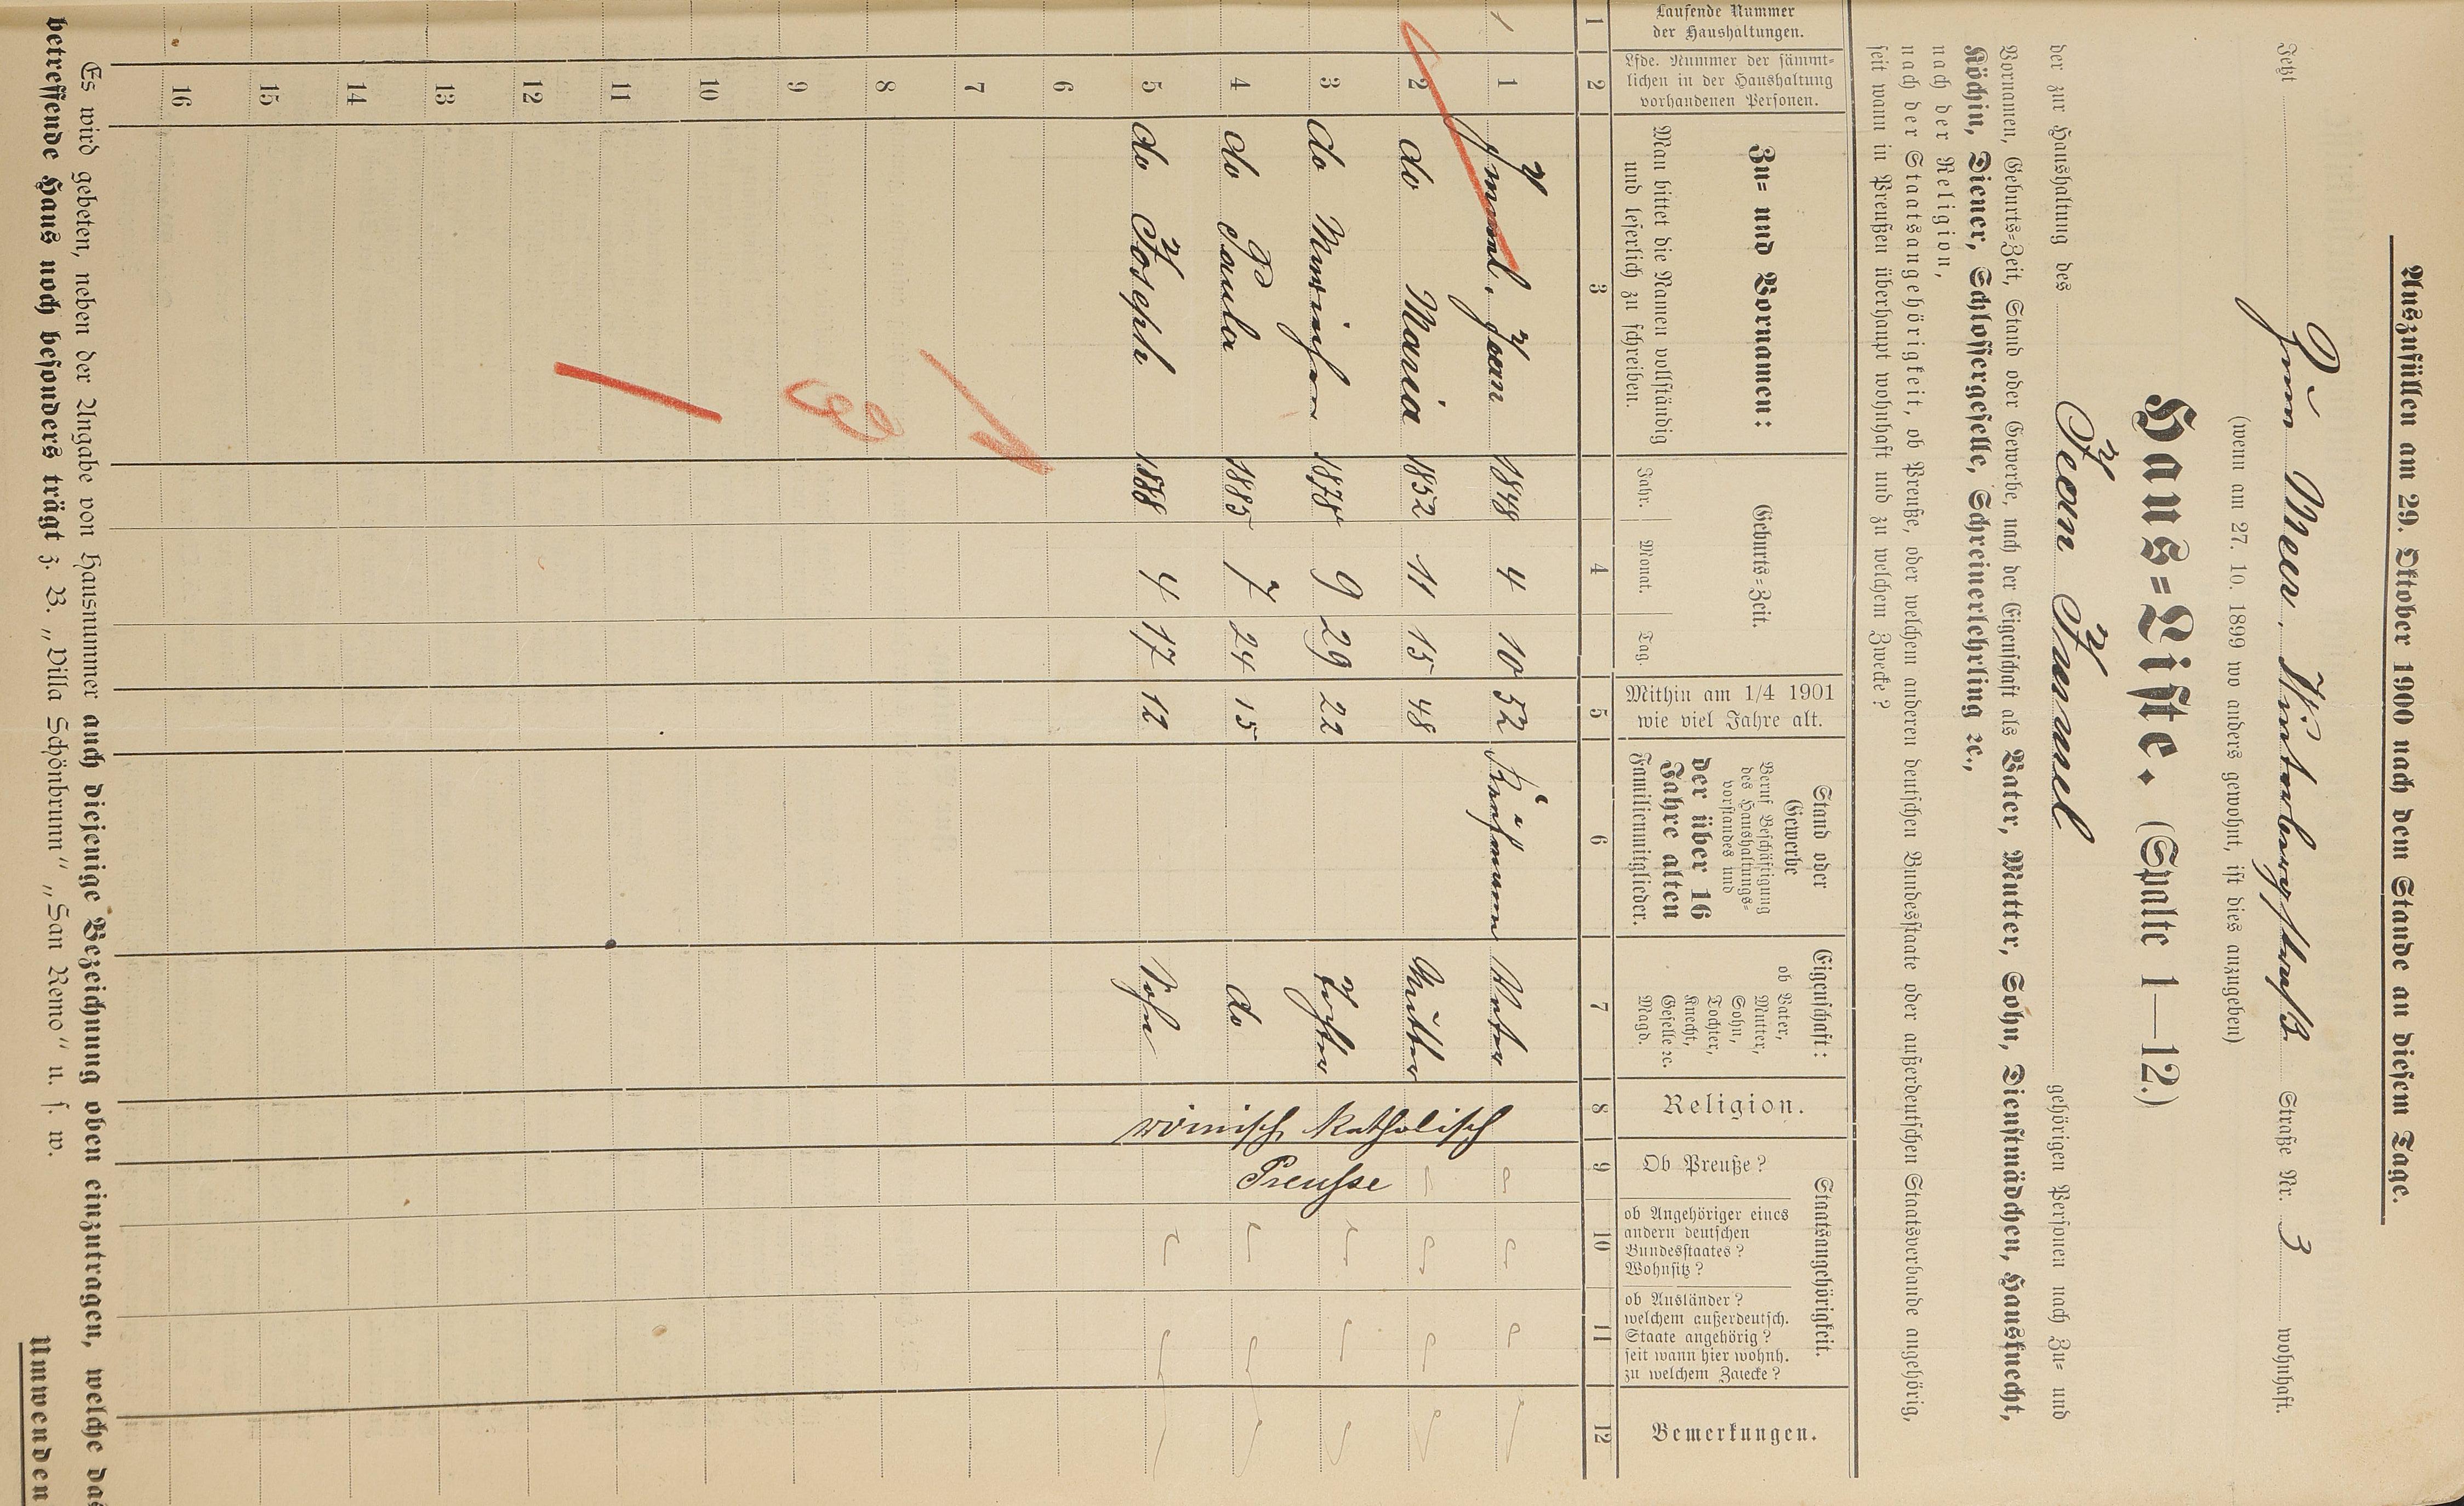 Auszufüllen am 29. Oktober 1900 nach dem Stande an diesem Tage.
Jetzt Zum Meer, Straße Nr. 3 wohnhaft.
(wenn am 27. 10. 1899 wo anders gewohnt, ist dies anzugeben)
Haus=Liste. (Spalte 1—12.)
der zur Haushaltung des Jean Immel gehörigen Personen nach Zu= und
Vornamen, Geburts=Zeit, Stand oder Gewerbe, nach der Eigenschaft als Vater, Mutter, Sohn, Dienstmädchen, Hausknecht,
Köchin, Diener, Schlossergeselle, Schreinerlehrling ꝛc.,
nach der Religion,
nach der Staatsangehörigkeit, ob Preuße, oder welchem anderen deutschen Bundesstaate oder außerdeutschen Staatsverbande angehörig,
seit wann in Preußen überhaupt wohnhaft und zu welchem Zwecke?
Laufende Nummer
der Haushaltungen.
Lfde. Nummer der sämmt=
lichen in der Haushaltung
vorhandenen Personen.
Zu= und Vornamen:
Man bittet die Namen vollständig
und leserlich zu schreiben.
Geburts=Zeit.
Jahr. Monat. Tag.
Mithin am 1/4 1901
wie viel Jahre alt.
Stand oder
Gewerbe
Beruf Beschäftigung
des Haushaltungs=
vorstandes und
der über 16
Jahre alten
Familienmitglieder.
Eigenschaft:
ob Vater,
Mutter,
Sohn,
Tochter,
Knecht,
Geselle ꝛc.
Magd.
Religion.
Staatsangehörigkeit.
Ob Preuße?
ob Angehöriger eines
andern deutschen
Bundesstaates?
Wohnsitz?
ob Ausländer?
welchem außerdeutsch.
Staate angehörig?
seit wann hier wohnh.
zu welchem Zwecke?
Bemerkungen.
1 2 3 4 5 6 7 8 9 10 11 12
1 1 Immel, Jean 1848 4 10 52 Kaufmann Vater
2 do Maria 1852 11 15 48 Mutter
3 do 1878 9 29 22 Tochter
4 do Paula 1885 7 24 15 do
5 do Joseph 1888 4 17 12 Sohn
römisch katholisch
Preusse
6
7
8
9
10
11
12
13
14
15
16
Es wird gebeten, neben der Angabe von Hausnummer auch diejenige Bezeichnung oben einzutragen, welche das
betreffende Haus noch besonders trägt z. B. „Villa Schönbrunn“ „San Remo“ u. s. w.
Umwenden